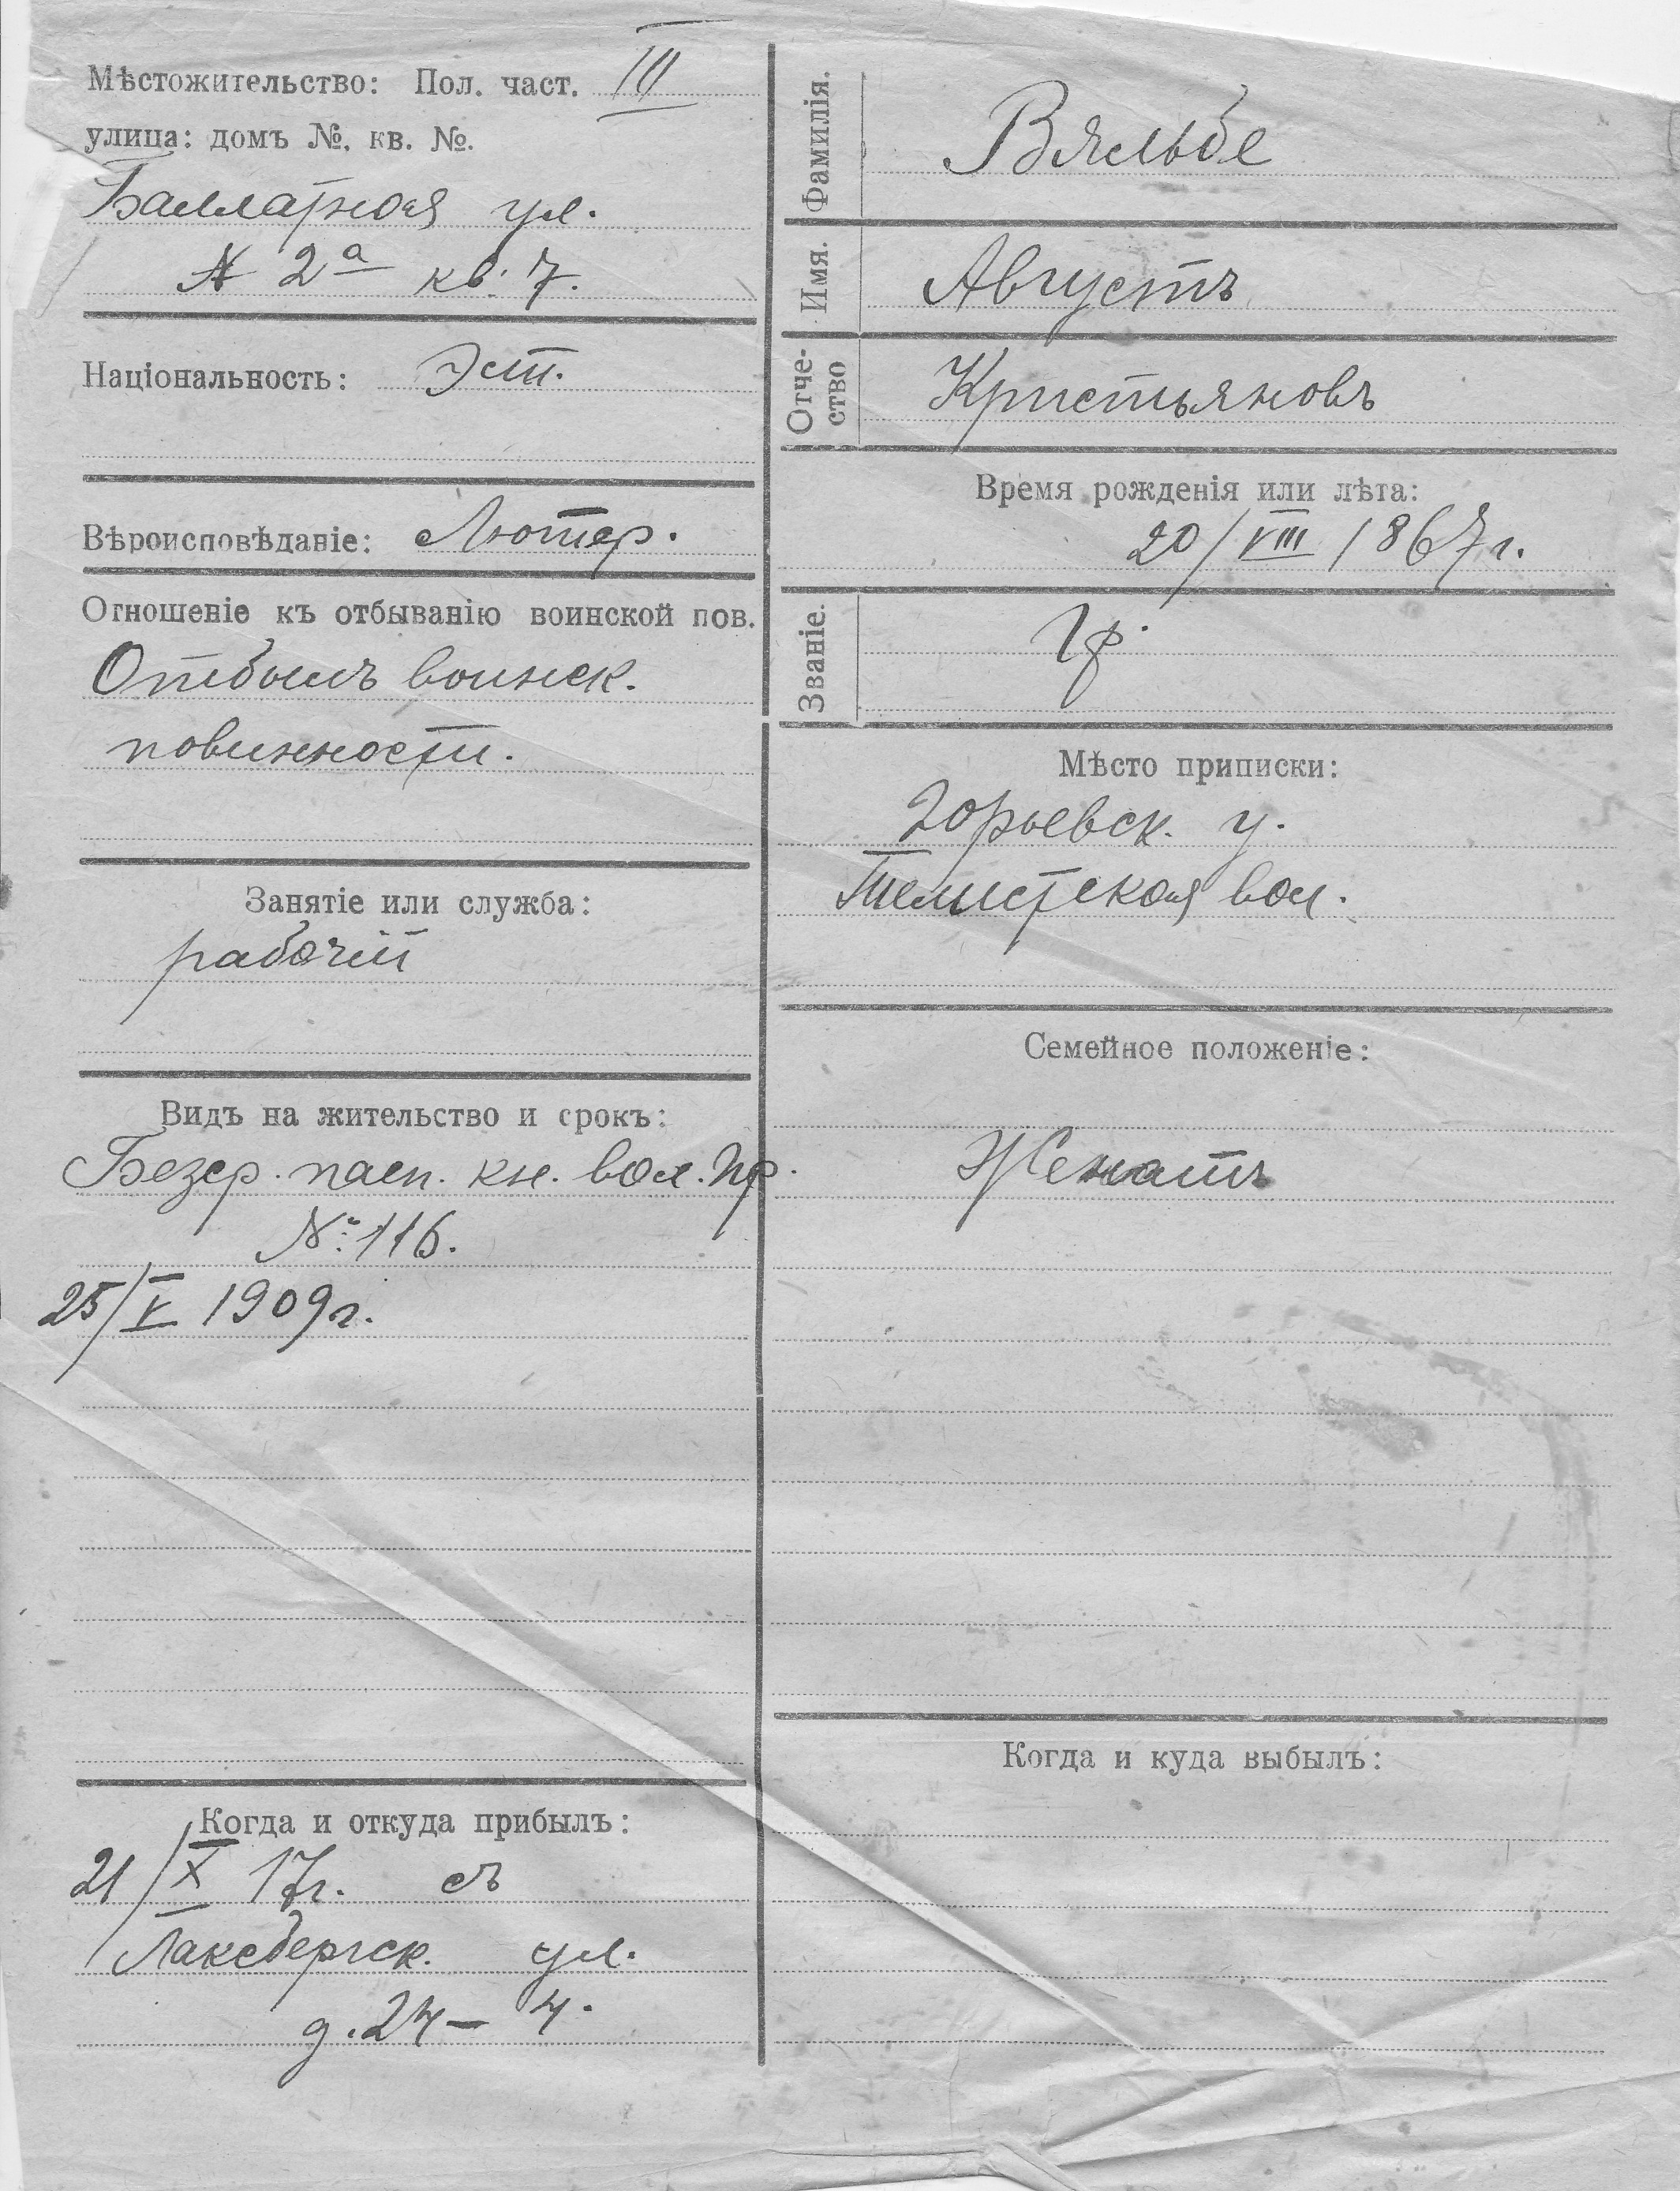 Мѣстожительство: Пол. част. III
улица: домъ №. кв. №.
Балластная ул.
№ 2а кв. 7.
Національность: Эст.
Вѣроисповѣданіе: Лютер.
Отношеніе къ отбыванію воинской пов.
Отбылъ воинск.
повинности.
Занятіе или служба:
рабочій
Видъ на жительство и срокъ:
Безср. пасп. кн. вол. пр.
№ 116.
25/V 1909 г.
Когда и откуда прибылъ:
21/X 17 г. съ
Лаксбергск. ул.
д. 24 – 4.
Фамилія. Вяльбе
Имя. Августъ
Отче-
ство Кристьяновъ
Время рожденія или лѣта:
20/VIII 1867 г.
Званіе. гр.
Мѣсто приписки:
Юрьевск. у.
вол.
Семейное положеніе:
Женатъ
Когда и куда выбылъ: